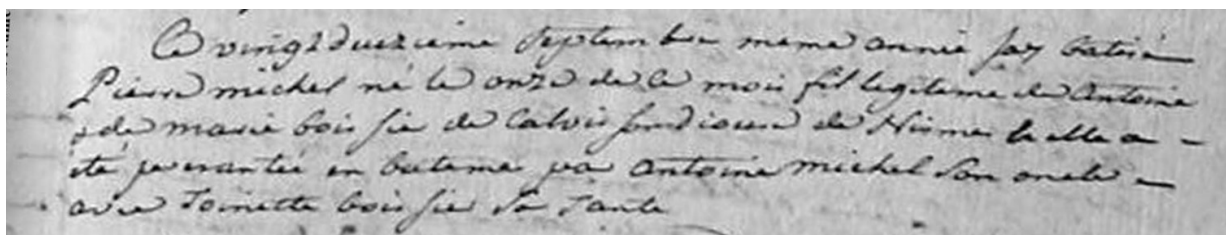 Ce vingt duezieme septembre meme année jay batisé
Pierre michel né le onze de ce mois fil legiteme de Antoine
& de marie boissie de Calvis de Nismes le elle a
été presantée en bateme pa antoine michel son oncle
avec Toinette boissie sa Tante